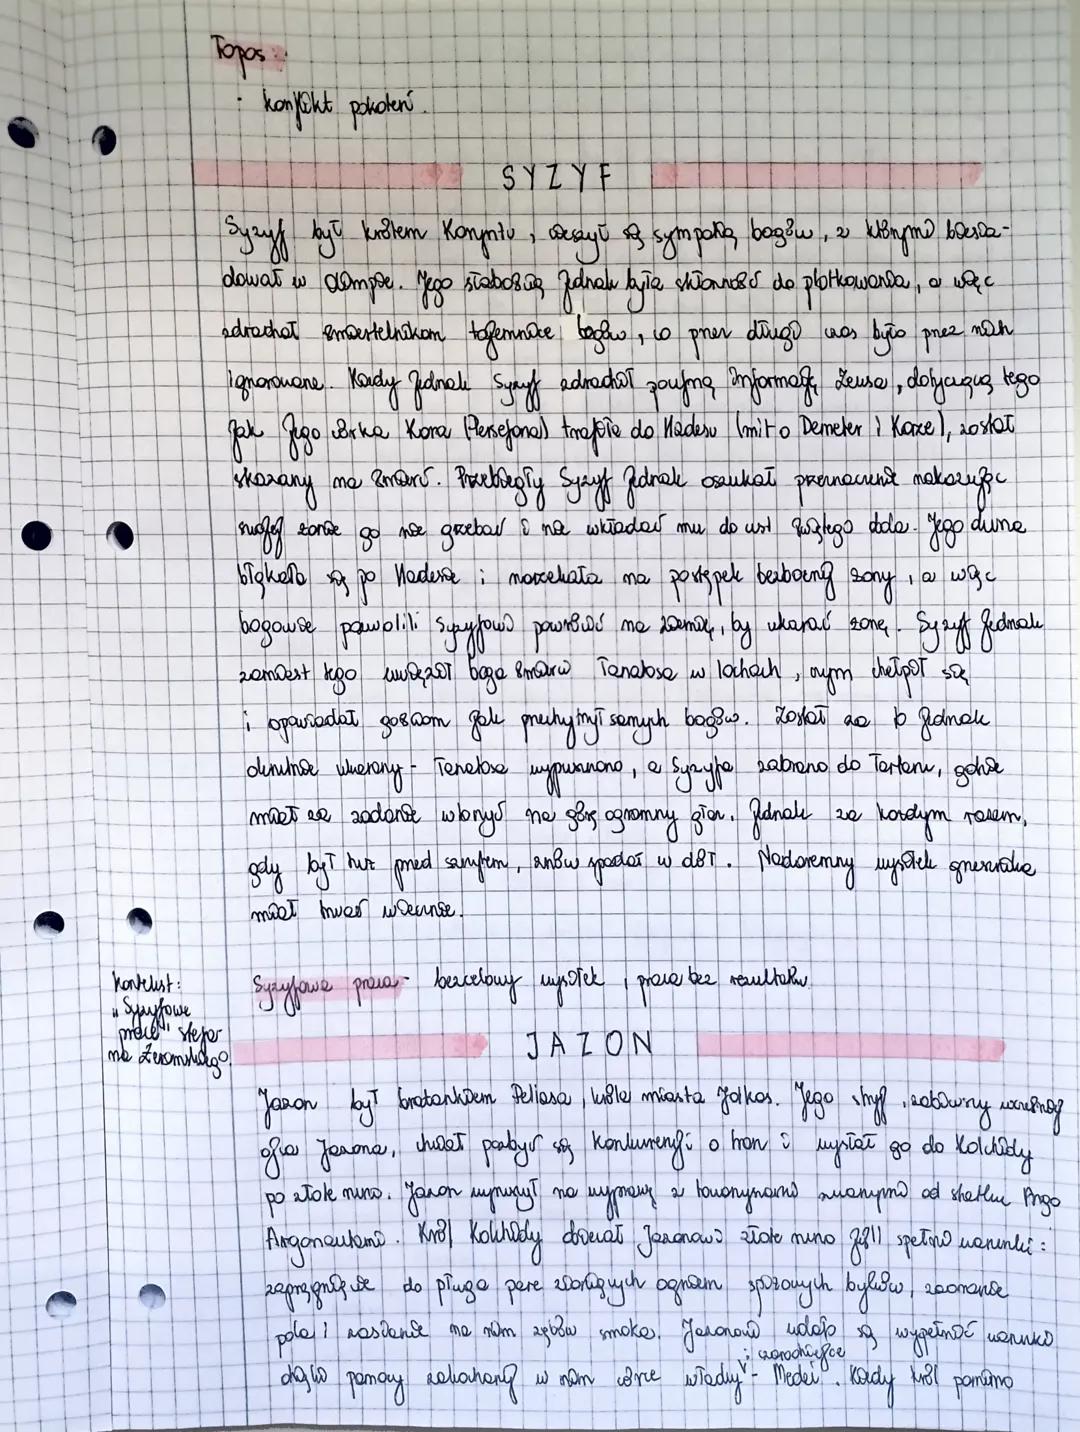 Topos:
· konflikt pokoleń.
SYZYF
Syzyf był królem Koryntu, cieszył się sympatią bogów, z którymi biesia-
dował w Olimpie. Jego słabością jednak była skłonność do plotkowania, a więc
zdradzał śmiertelnikom tajemnice bogów, co przez długi czas było przez nich
ignorowane. Kiedy jednak Syzyf zdradził poufną informację Zeusa, dotyczącą tego
jak jego córka Kora (Persefona) trafiła do Hadesu (mit o Demeter i Korze), został
skazany na śmierć. Przebiegły Syzyf jednak oszukał przeznaczenie nakazując
swojej żonie go nie grzebać i nie wkładać mu do ust obola. Jego dusza
błąkała się po Hadesie i narzekała na postępek bezbożnej żony, a więc
bogowie pozwolili Syzyfowi powrócić na ziemię, by ukarać żonę. Syzyf jednak
zamiast tego uwięził boga śmierci Tanatosa w lochach, czym chełpił się
i opowiadał gościom jak przechytrzył samych bogów. Został za to jednak
ukarany - Tanatosa wypuszczono, a Syzyfa zabrano do Tartaru, gdzie
miał za zadanie wtoczyć na górę ogromny głaz. Jednak za każdym razem,
gdy był tuż przed szczytem, znów spadał w dół. Nadaremny wysiłek grzesznika
miał trwać wiecznie.
Kontekst:
"Syzyfowe
prace" Stefa-
na Żeromskiego.
Syzyfowa praca - bezcelowy wysiłek, praca bez rezultatu
JAZON
Jazon był bratankiem Peliasa, króla miasta Jolkos. Jego stryj, zabiwszy wcześniej
ojca Jazona, chciał pozbyć się konkurencji o tron i wysłał go do Kolchidy
po złote runo. Jazon wyruszył na wyprawę z towarzyszami zwanymi od statku Argo
Argonautami. Król Kolchidy obiecał Jazonowi złote runo jeśli spełni warunki:
zaprzęgnięcie do pługa parę ziejących ogniem spiżowych byków, zaoranie
pola i zasianie na nim zębów smoka. Jazonowi udało się wypełnić warunki
i czarodziejce
dzięki pomocy zakochanej w nim córce władcy - Medei. Kiedy król pomimo